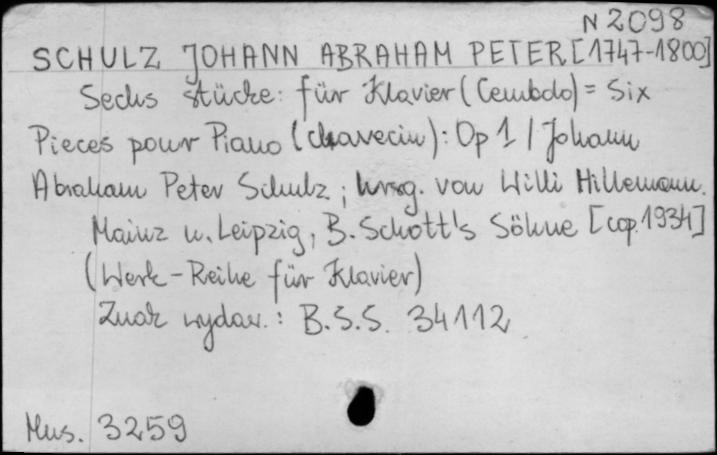 N 2098
SCHULZ JOHANN ABRAHAM PETER [1747-1800]
Sechs Stücke: für Klavier (Cembalo) = Six
Pieces pour Piano (clavecin): Op 1 / Johann
Abraham Peter Schulz ; hrsg. von Willi Hillemann.
Mainz u. Leipzig, B. Schott's Söhne [cop. 1934]
(Werk-Reihe für Klavier)
Znak wydaw.: B.S.S. 34112
Mus. 3259